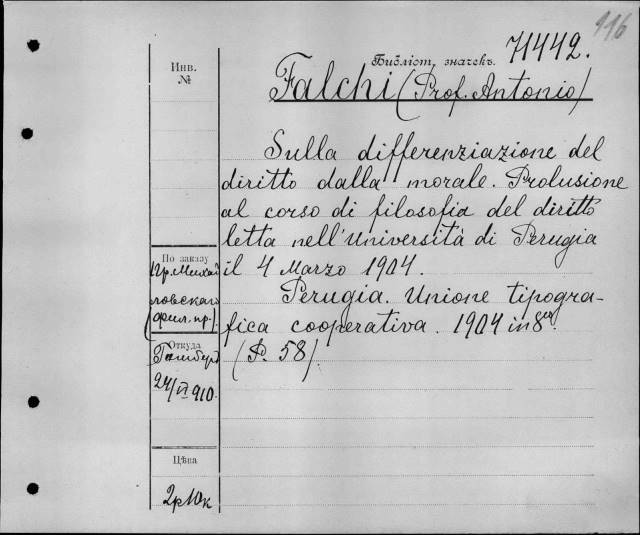 916
Библіот. значекъ 71442.
Falchi (Prof. Antonio)
Инв.
№
Sulla differenziazione del
diritto dalla morale. Prolusione
al corso di filosofia del diritto
letta nell'Università di Perugia
il 4 Marzo 1904.
Perugia. Unione tipogra-
fica cooperativa. 1904 in 8º.
(P. 58).
По заказу
Пр. Михай
ловскаго
(фил. пр.)
Откуда
24/VI 910.
Цѣна
2р10к